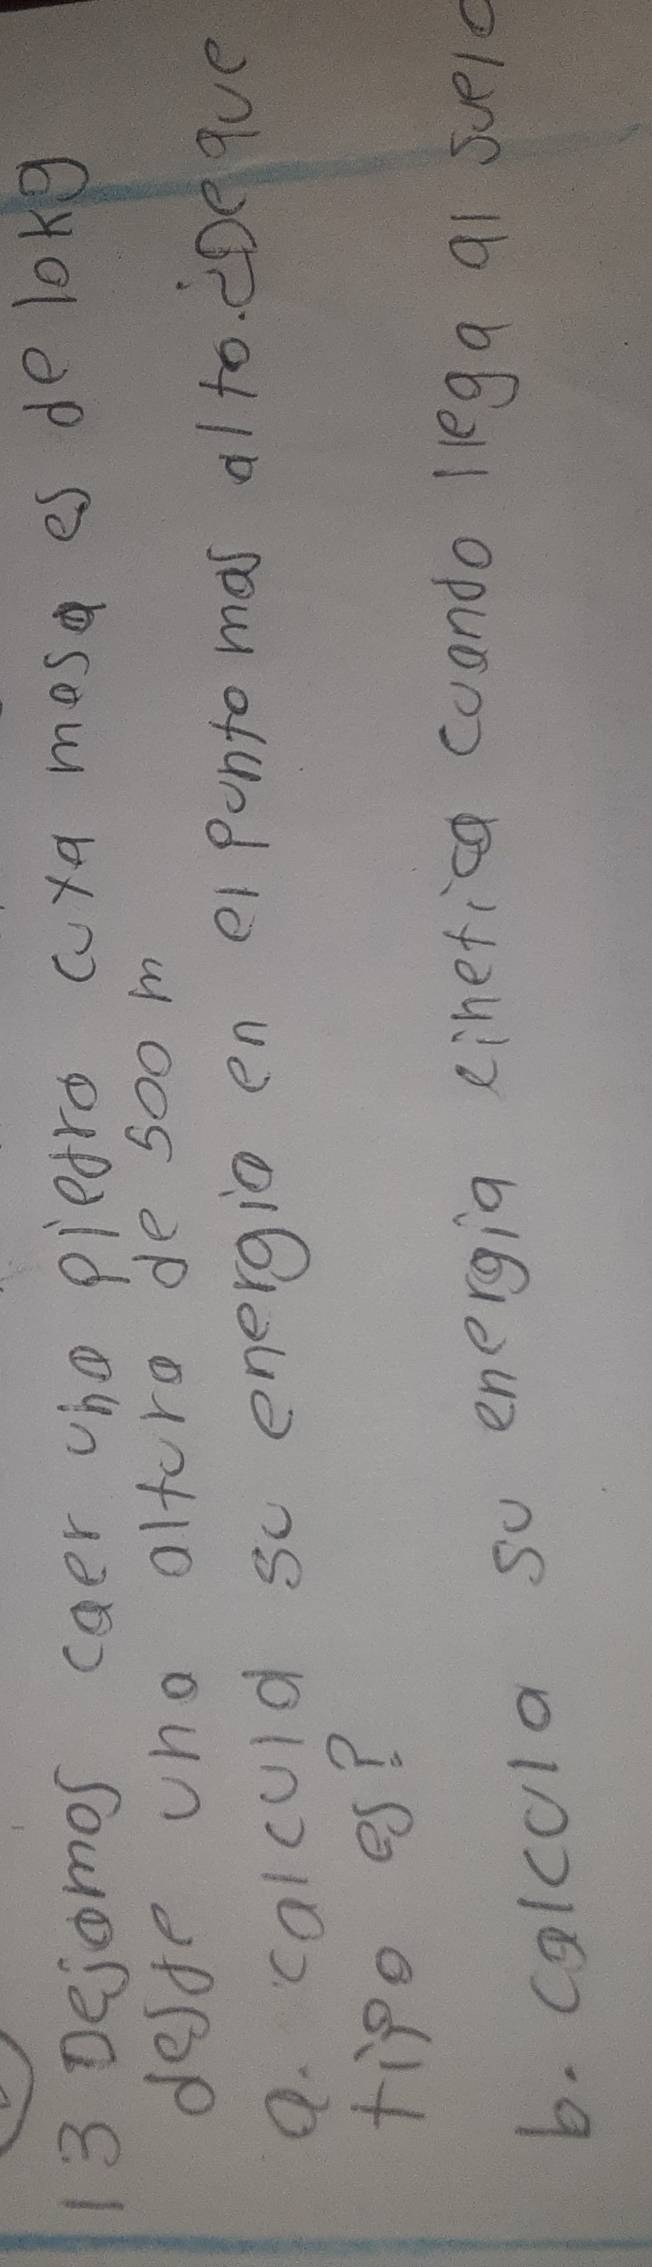 13 Dejamos caer una piedra cuya masa es de 10kg
desde una altura de 500 m
a. calcula su energia en el punto mas alto. ¿De que
tipo es?
b. calcula su energia cinetica cuando llega al suelo